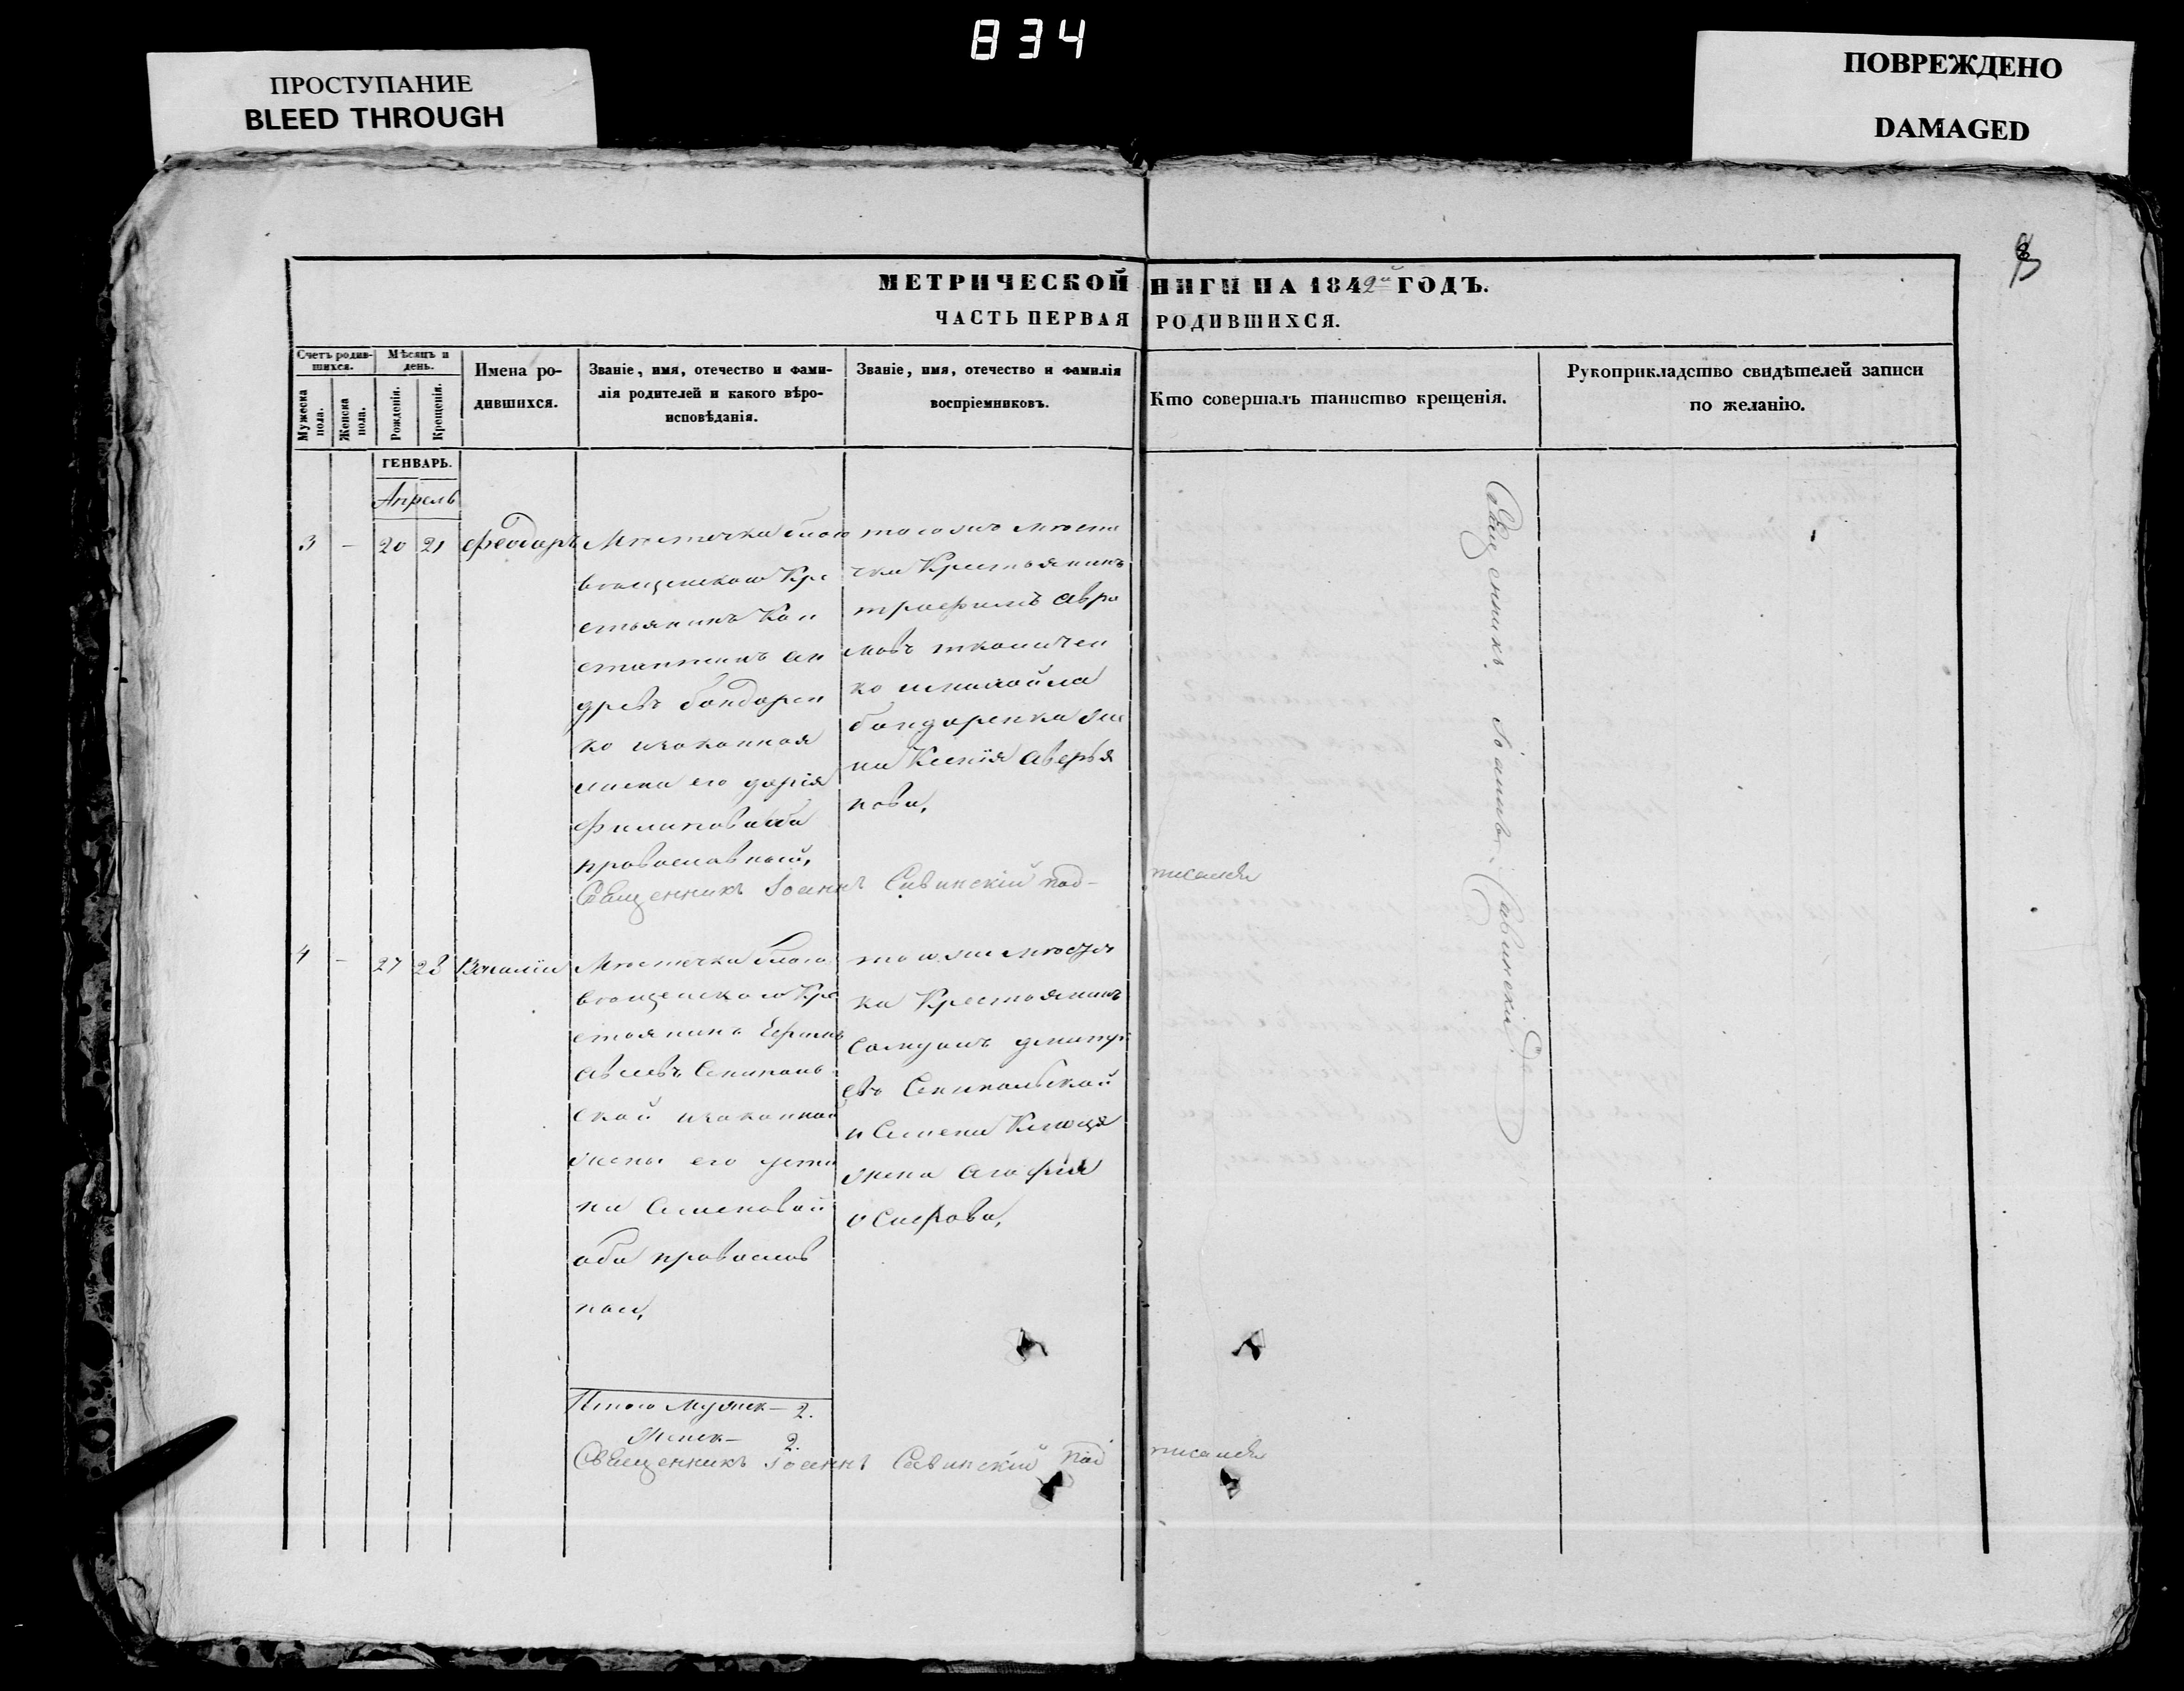 834
ПРОСТУПАНИЕ
BLEED THROUGH
ПОВРЕЖДЕНО
DAMAGED
8
МЕТРИЧЕСКОЙ НИГИ НА 1842й ГОДЪ.
ЧАСТЬ ПЕРВАЯ РОДИВШИХСЯ.
Счетъ родив-
шихся.
Мужеска
пола.
Женска
пола.
Мѣсяцъ и
день.
Рожденія.
Крещенія.
Имена ро-
дившихся.
Званіе, имя, отечество и фами-
лія родителей и какого вѣро-
исповѣданія.
Званіе, имя, отечество и фамилія
воспріемниковъ.
Кто совершалъ таинство крещенія.
Рукоприкладство свидѣтелей записи
по желанію.
ГЕНВАРЬ.
Апрель
3 – 20 21 Феодоръ
Мѣстечка благо
вѣщенскаго Кре
стьянинъ Кон
стантинъ ан
дреевъ бондарен
ко изаконная
жена его дарія
Филипова оба
православной,
тогожъ мѣсте
чка Крестьянинъ
трофимъ авра
мовъ
ко
бондаренка же
на Ксенія аверья
нова,
Священникъ Іоаннъ Савинскій под-
писался
4 – 27 28
Мѣстечка благо
вѣщенскаго Кре
стьянинъ
ской изаконной
жены его усти
ни Семеновой
оба православ
ной,
тогоже мѣсте
ка Крестьянинъ
дмитрі
евъ
и Семена
жена агафія
осипова,
Итого Мужск – 2.
Женск – 2.
Священникъ Іоаннъ Савинскій под
писался
Священникъ Іоаннъ Савинскій